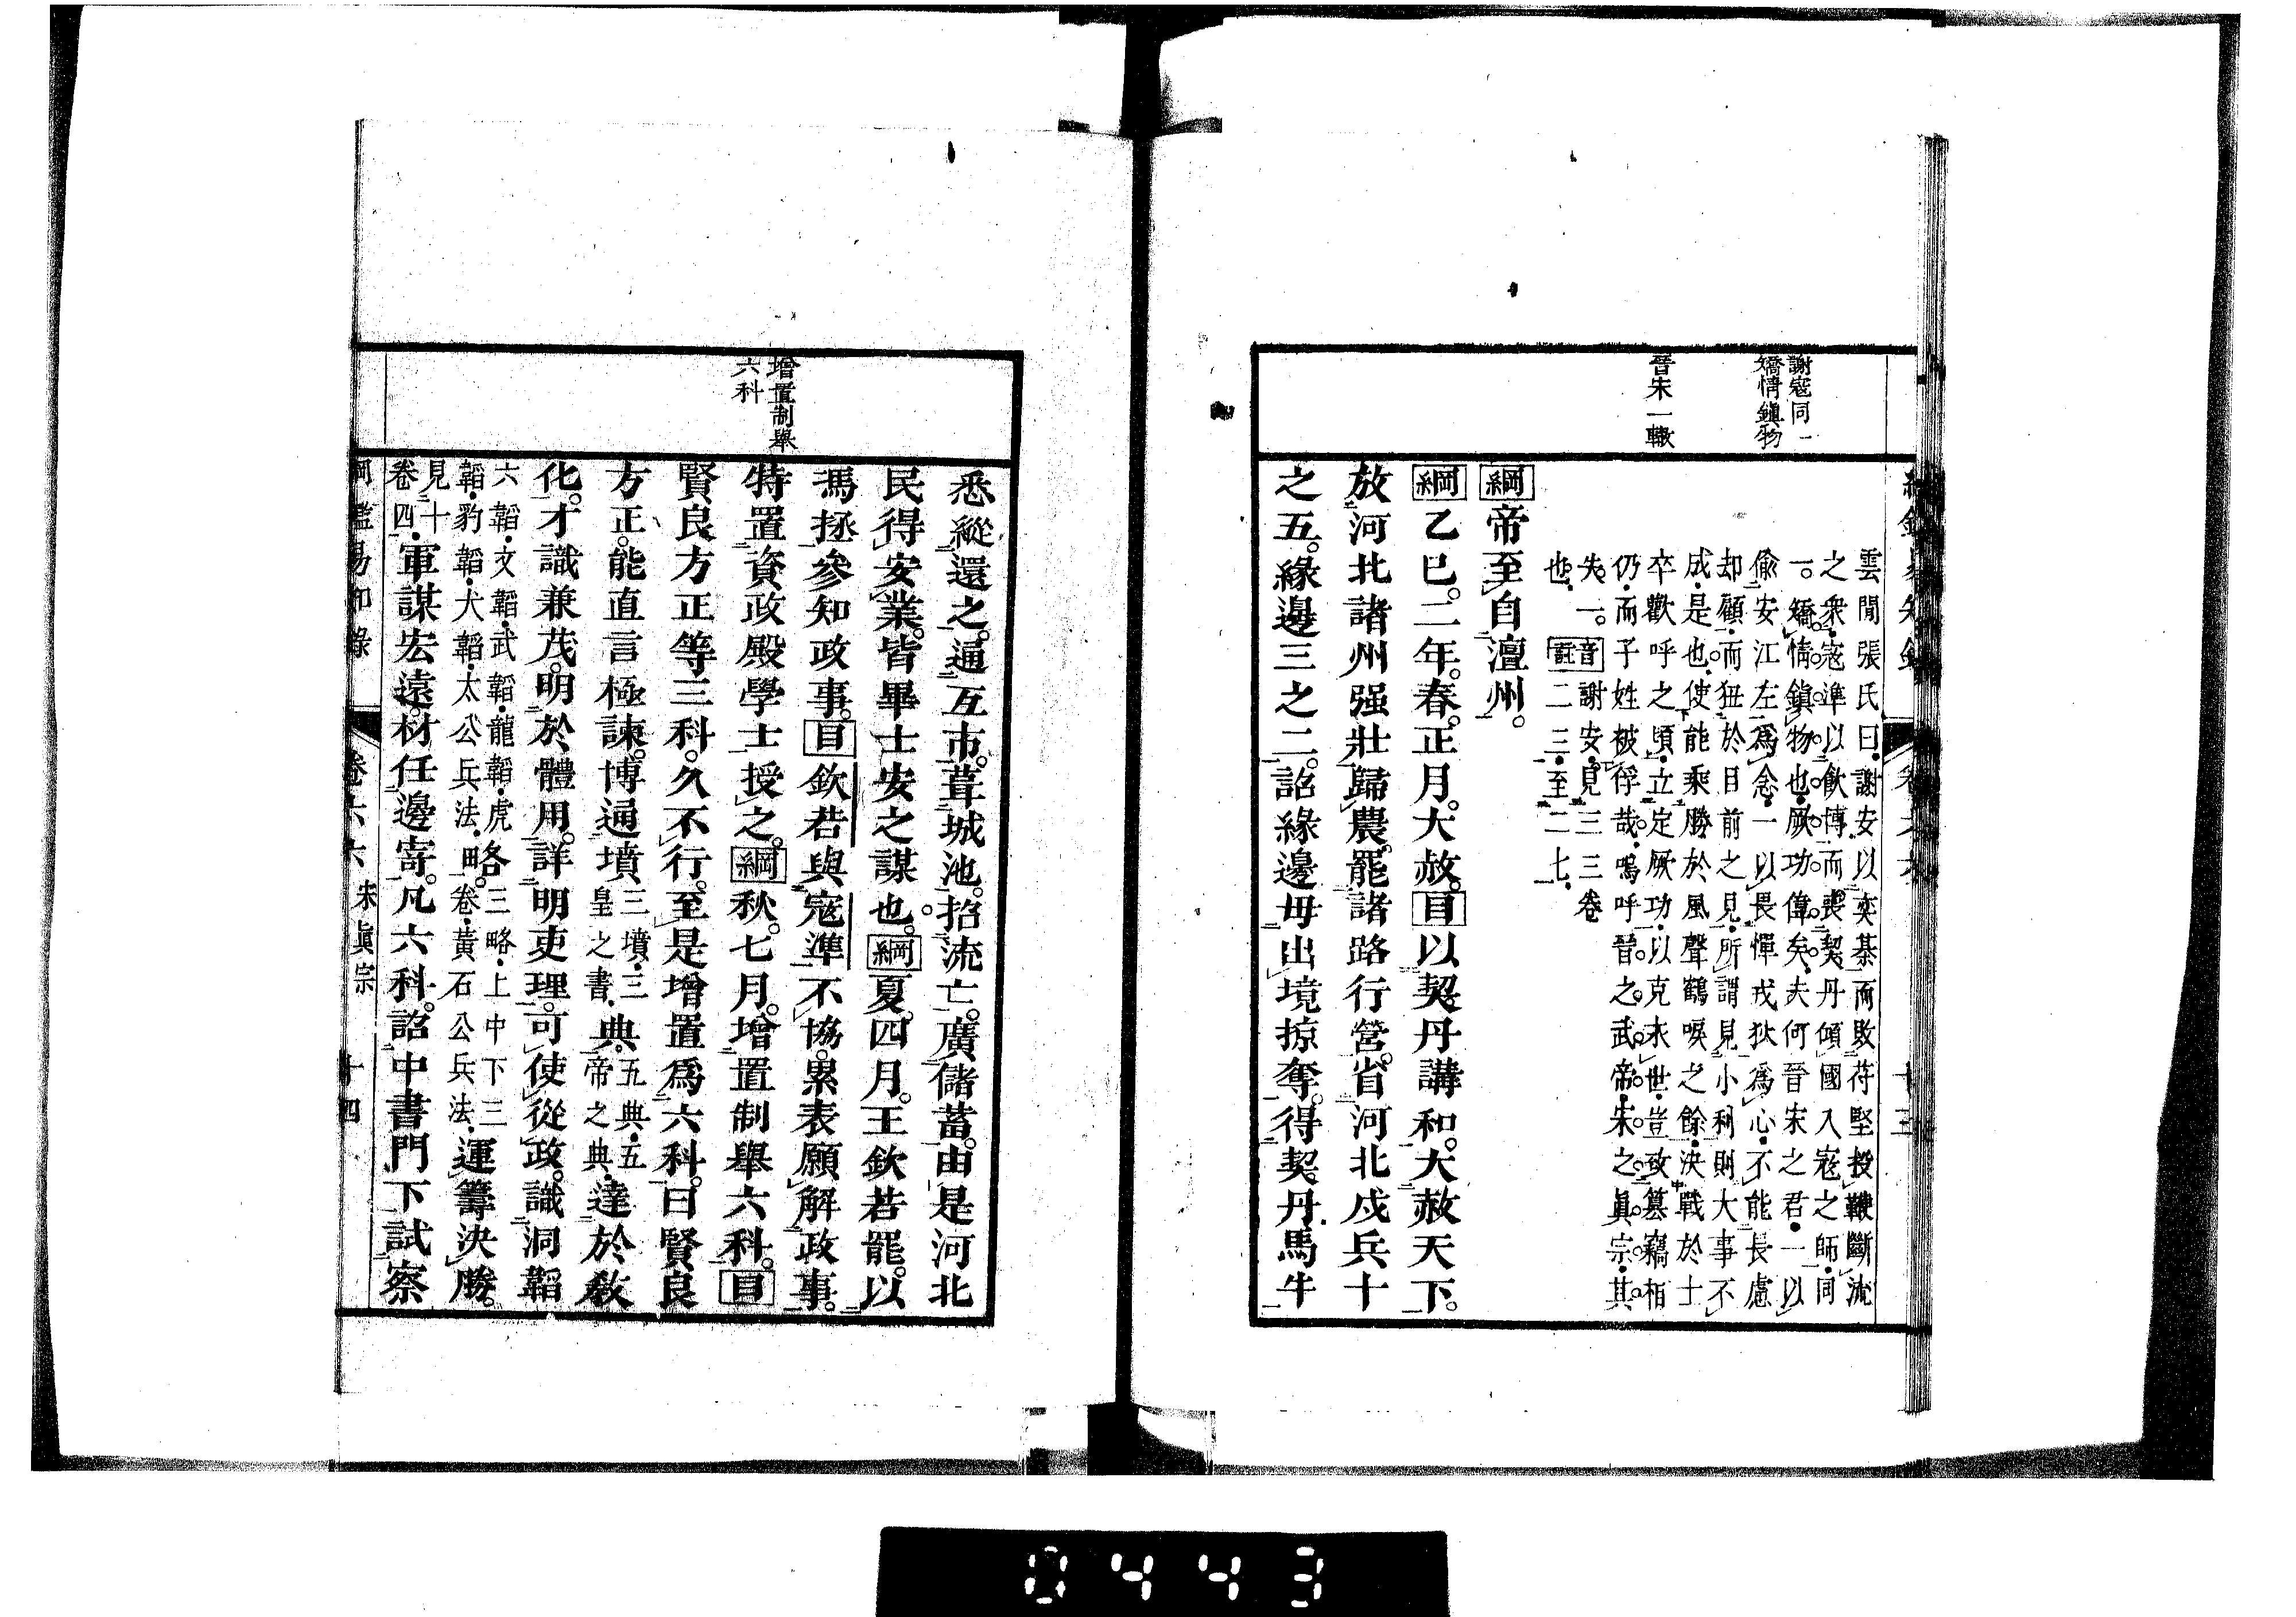 謝寇同一
矯情鎭物
晉宋一轍
雲間張氏曰謝安以奕棊而敗苻堅投鞭斷流
之衆寇準以飮博而喪契丹傾國入寇之師同
一矯情鎭物也厥功偉矣夫何晉宋之君一以
偸安江左爲念一以畏憚戎狄爲心不能長慮
却顧而狃於目前之見所謂見小利則大事不
成是也使能乘勝於風聲鶴唳之餘決戰於士
卒歡呼之頃立定厥功以克永世豈致簒竊相
仍而子姓被俘哉嗚呼晉之武帝宋之眞宗其
失一 音註 謝安見三三卷
也 二三至二七
綱帝至自澶州。
綱乙巳。二年。春。正月。大赦。目以契丹講和。大赦天下。
放河北諸州强壯歸農。罷諸路行營。省河北戍兵十
之五。緣邊三之二。詔緣邊毋出境掠奪。得契丹馬牛
增置制舉
六科
悉縱還之。通互市。葺城池。招流亡。廣儲蓄。由是河北
民得安業。皆畢士安之謀也。綱夏。四月。王欽若罷。以
馮拯參知政事。目欽若與寇準不協。累表願解政事。
特置資政殿學士授之。綱秋。七月。增置制舉六科。目
賢良方正等三科。久不行。至是增置爲六科。曰賢良
方正。能直言極諫。博通墳三墳三皇之書典五典五帝之典達於敎
化。才識兼茂。明於體用。詳明吏理。可使從政。識洞韜
六韜文韜武韜龍韜虎韜豹韜犬韜太公兵法見十卷四略。三略上中下三卷黃石公兵法運籌決勝。
軍謀宏遠。材任邊寄。凡六科。詔中書門下試察
綱鑑易知錄 卷六六 宋眞宗 十四